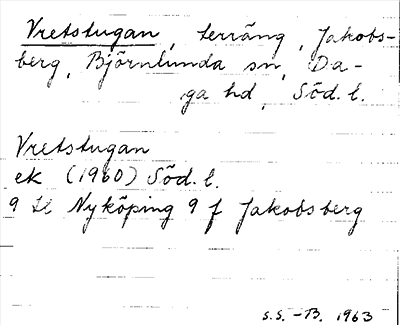 Vretstugan, terräng, Jakobs-
berg, Björnlunda sn, Da-
ga hd, Söd. l.
Vretstugan
ek (1960) Söd. l.
9 Nyköping 9 f Jakobsberg
S.S. -B. 1963